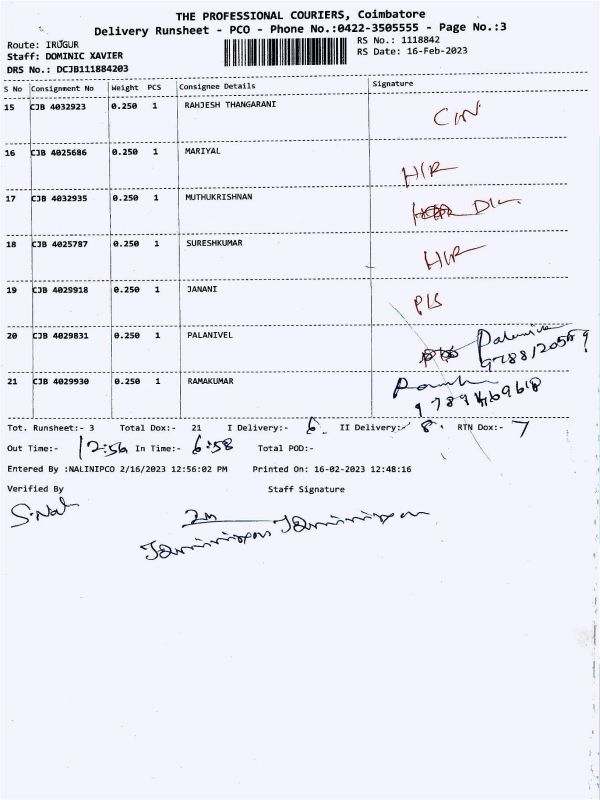 THE PROFESSIONAL COURIERS, Coimbatore
Delivery Runsheet - PCO - Phone No.:0422-3505555 - Page No.:3
Route: IRUGUR
RS No.: 1118842
Staff: DOMINIC XAVIER
RS Date: 16-Feb-2023
DRS No.: DCJB111884203
S No Consignment No Weight PCS Consignee Details Signature
15 CJB 4032923 0.250 1 RAHJESH THANGARANI
16 CJB 4025686 0.250 1 MARIYAL HIR
17 CJB 4032935 0.250 1 MUTHUKRISHNAN DL
18 CJB 4025787 0.250 1 SURESHKUMAR HIR
19 CJB 4029918 0.250 1 JANANI PLS
20 CJB 4029831 0.250 1 PALANIVEL
21 CJB 4029930 0.250 1 RAMAKUMAR
Tot. Runsheet:- 3 Total Dox:- 21 I Delivery:- 6 II Delivery:- 8 RTN Dox:- 7
Out Time:- 12:56 In Time:- 6:58 Total POD:-
Entered By :NALINIPCO 2/16/2023 12:56:02 PM Printed On: 16-02-2023 12:48:16
Verified By Staff Signature